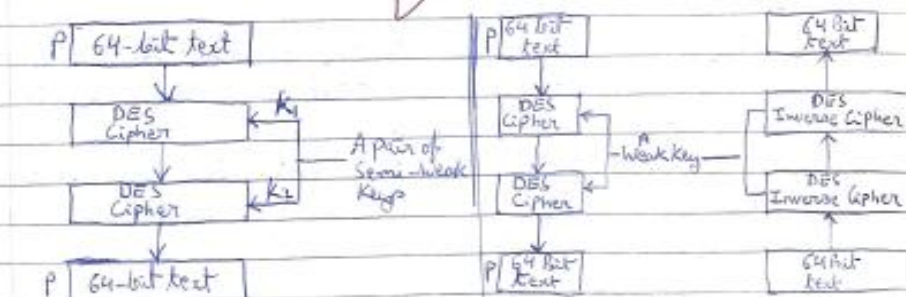 P 64-bit text
DES
Cipher
K1
A pair of
Semi-weak
Keys
DES
Cipher
K2
P 64-bit text
P 64 bit
text
DES
Cipher
A
Weak Key
DES
Cipher
P 64 Bit
text
64 Bit
text
DES
Inverse Cipher
DES
Inverse Cipher
64 Bit
text